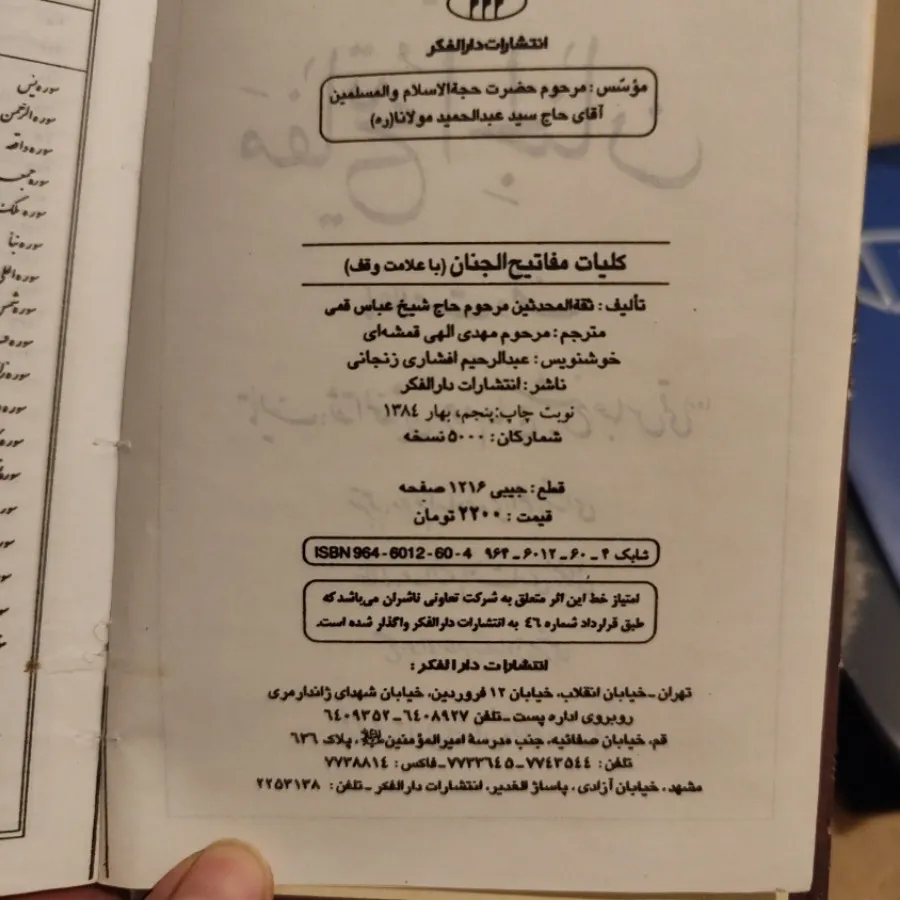 انتشارات دارالفکر
مؤسّس: مرحوم حضرت حجةالاسلام والمسلمین
آقای حاج سید عبدالحمید مولانا(ره)
کلیات مفاتیح‌الجنان (با علامت وقف)
تألیف: ثقةالمحدثین مرحوم حاج شیخ عباس قمی
مترجم: مرحوم مهدی الهی قمشه‌ای
خوشنویس: عبدالرحیم افشاری زنجانی
ناشر: انتشارات دارالفکر
نوبت چاپ: پنجم، بهار ۱۳۸٤
شمارکان: ۵۰۰۰ نسخه
قطع: جیبی ۱۲۱۶ صفحه
قیمت: ۲۲۰۰ تومان
شابک ۴ـ۶۰ـ۶۰۱۲ـ۹۶۴ ISBN 964-6012-60-4
امتیاز خط این اثر متعلق به شرکت تعاونی ناشران می‌باشد که
طبق قرارداد شماره ۴۶ به انتشارات دارالفکر واگذار شده است.
انتشارات دارالفکر:
تهران ـ خیابان انقلاب، خیابان ۱۲ فروردین، خیابان شهدای ژاندارمری
روبروی اداره پست ـ تلفن ۶۴۰۸۹۲۷ـ۶۴۰۹۳۵۲
قم، خیابان صفائیه، جنب مدرسهٔ امیرالمؤمنین، پلاک ۶۳۶
تلفن: ۷۷۴۳۵۴۴ـ۷۷۳۳۶۴۵ـ فاکس: ۷۷۳۸۸۱۴
مشهد، خیابان آزادی، پاساژ الغدیر، انتشارات دارالفکر ـ تلفن: ۲۲۵۳۱۳۸
سوره یس
سوره الرحمن
سوره واقعه
سوره جمعه
سوره ملک
سوره نبأ
سوره اعلی
سوره شمس